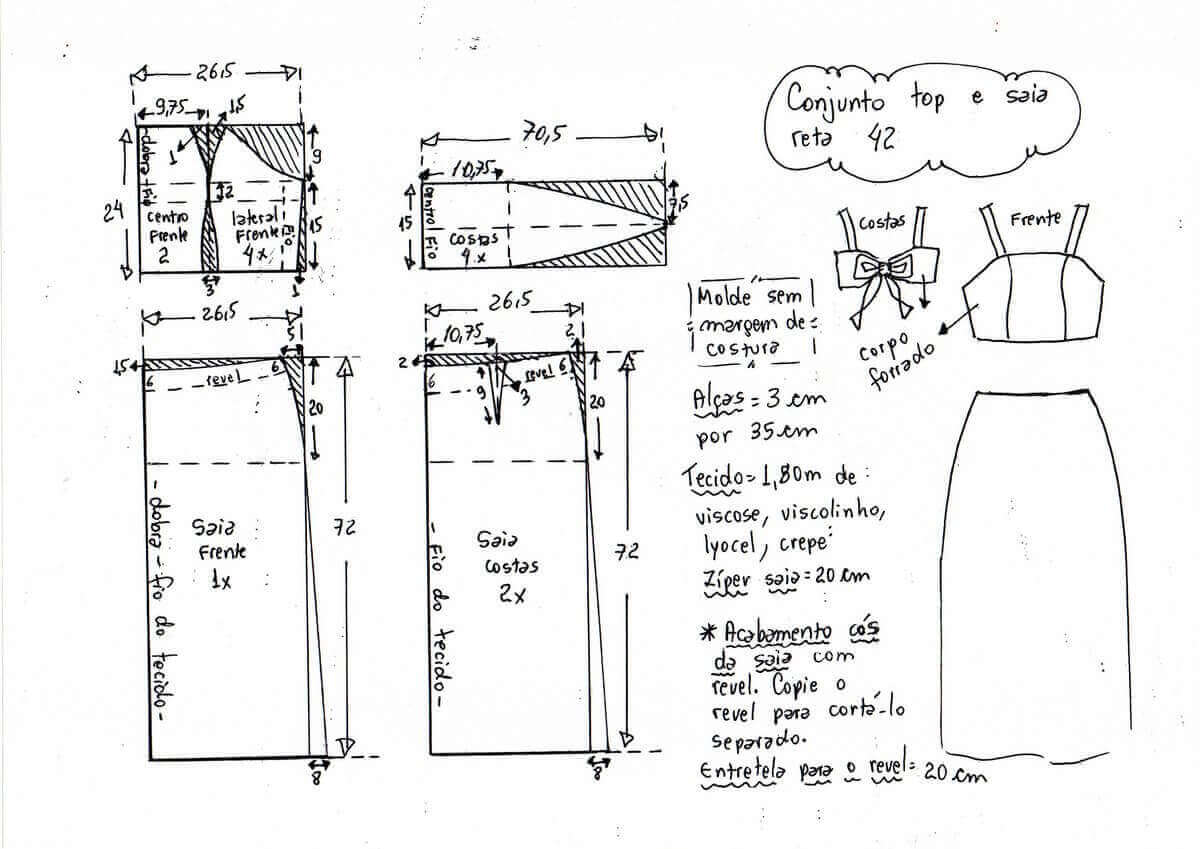 Conjunto top e saia
reta 42
26,5
9,75
1,5
1
9
dobra - fio
24
2
centro
Frente
2
lateral
Frente
4x
Fio
15
3
1
70,5
10,75
15
centro
Fio
costas
4x
7,5
Costas
Frente
corpo
forrado
Molde sem
margem de
costura
Alças = 3 cm
por 35 cm
Tecido = 1,80m de:
viscose, viscolinho,
lyocel, crepe
Zíper saia = 20 cm
* Acabamento cós
da saia com
revel. Copie o
revel para cortá-lo
separado.
Entretela para o revel = 20 cm
26,5
5
1,5
6
revel
6
20
72
- dobra - fio do tecido -
Saia
Frente
1x
8
26,5
10,75
2
2
6
9
3
revel
6
20
72
- Fio do tecido -
Saia
costas
2x
8